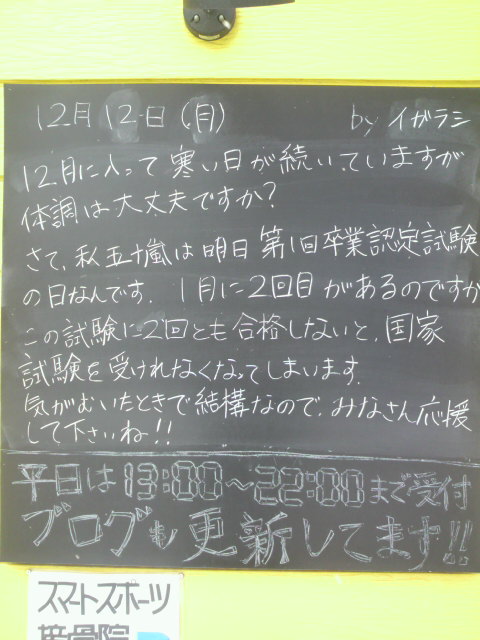 12月12日(月) by イガラシ
12月に入って寒い日が続いていますが
体調は大丈夫ですか?
さて、私五十嵐は明日第1回卒業認定試験
の日なんです。1月に2回目があるのですが
この試験に2回とも合格しないと、国家
試験を受けれなくなってしまいます。
気がむいたときで結構なので、みなさん応援
して下さいね!!
平日は13:00~22:00まで受付
ブログも更新してます!!
スマートスポーツ
接骨院